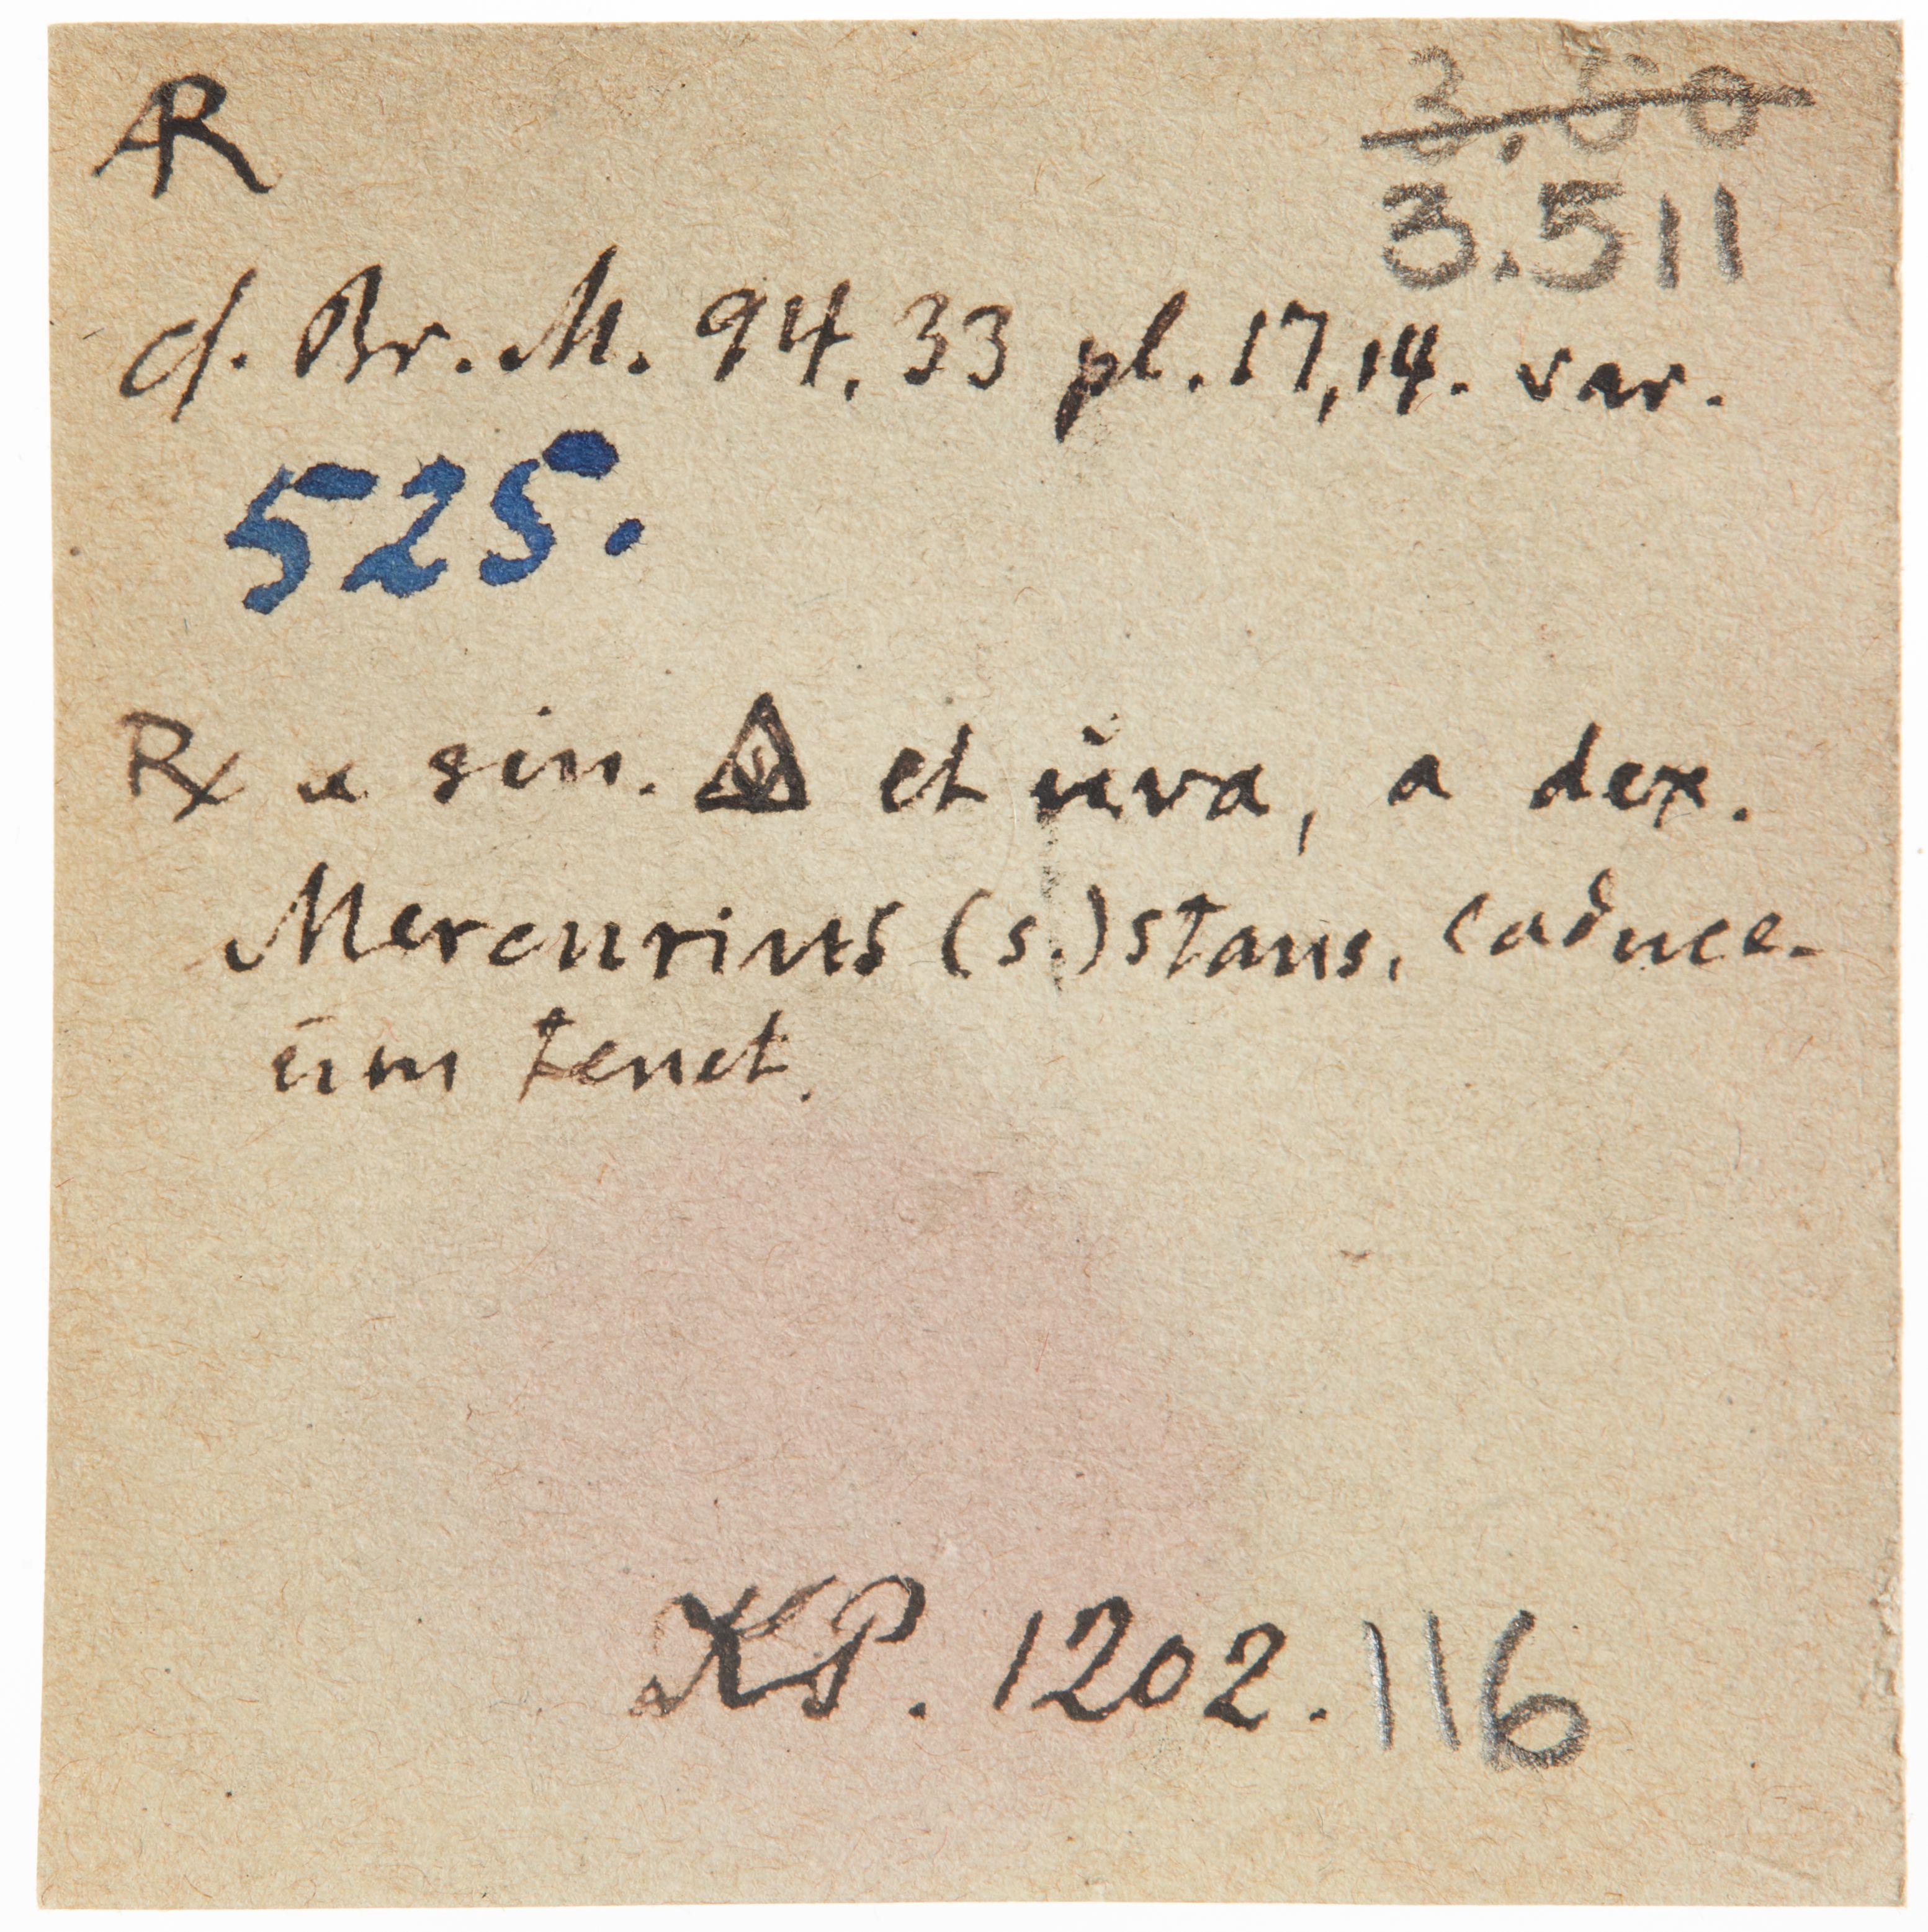 AR
3.60
3.511
cf. Br. M. 94. 33 pl. 17,14. var.
525.
Rx a sin. et uva, a dex.
Mercurius (s.) stans, caduce-
um tenet.
KP. 1202. 116